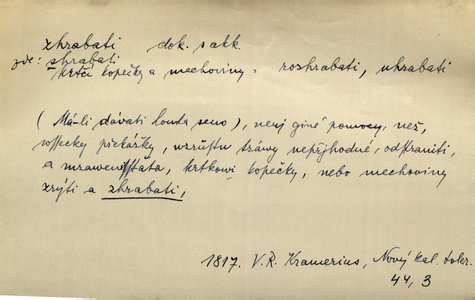 zhrabati dok. sakk.
zde: shrabati
krtčí kopečky a mechoviny = rozhrabati, uhrabati
(Má-li dávati louka seno), nenj giné pomocy, než,
wssecky překážky, wzrůstu tráwy nepřjhodné, odstraniti,
a mraweniště, krtkowé kopečky, nebo mechowiny
zrýti a zhrabati,
1817. V. R. Kramerius, Nový kal. toler.
44, 3